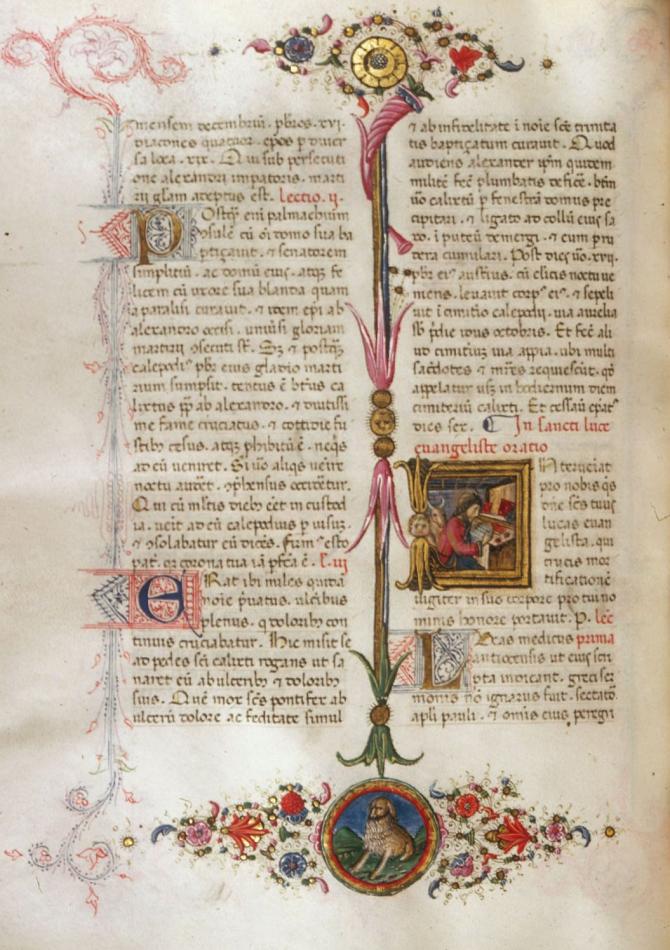 mensem decembriū. pbr̄os. xvi.
diacones quatuor. ep̄os p̄ diuer
sa loca. xix. Qui sub persecuti
one alexandri imperatoris. marti
rii gl̄iam adeptus est. Lectio. ij.
Postq̄ꝫ eni palmachium
ꝯsulē cū oī domo sua ba
ptiçauit. ⁊ senatorem
simpliciū. ac domū eius. atqꝫ fe
licem cū uxore sua blanda quam
a paralisi curauit. ⁊ item ep̄i ab
alexandro occisi. unius gloriam
martirij ꝯsecuti st̄. Sꝫ ⁊ postq̄ꝫ
calepodiꝰ pbr̄ eius gladio marti
rium sumpsit. tentus ē bt̄us ca
lixtus pp̄ ab alexandro. ⁊ diutissi
me fame cruciatus. ⁊ cottidie fu
stibꝰ cesus. atqꝫ phibitū ē. ne q̄s
ad eū veniret. Si uō aliq̄s ueīre
noctu auderet. ꝯp̄hensus occideretur.
Qui cū mltis diebꝰ eēt in custod
ia. ueīt ad eū calepodius p̄ uisuꝫ.
⁊ ꝯsolabatur eū dicēs. Firmꝰ esto
pat̄. qꝛ corona tua iā pfc̄a ē. L. iij
Erat ibi miles quidā
noīe p̄uatus. ulceribus
plenus. q̄ doloribꝰ con
tinuis cruciabatur. Hic misit se
ad pedes sc̄i calixti rogans ut sa
naret eū ab ulceribꝰ ⁊ doloribꝰ
suis. Quē mox sc̄s pontifex ab
ulcerū dolore ac feditate simul
⁊ ab infidelitate ī noīe sc̄e trinita
tis baptiçatum curauit. Quod
audiens alexander ip̄m quidem
militē fec̄ plumbatis deficē. btm̄
uō calixtū p̄ fenestrā domus pre
cipitari. ⁊ ligato ad collū eius sa
xo. ī puteū demergi. ⁊ eum p̄ ru
dera cumulari. Post dies uō. xvij.
pbr̄ eiꝰ asterius. cū clicis noctu ue
niens. leuauit corpꝰ eiꝰ. ⁊ sepeli
uit ī cimitio calepodij. uia aurelia
sb̄ p̄die idus octobris. Et fec̄ ali
ud cimitiuꝫ uia appia. ubi multi
sac̄dotes ⁊ mr̄es requiescūt. qd̄
appellatur usqꝫ in hodiernum diem
cimiterium calixti. Et cessauit ep̄atꝰ
dies sex. In sancti luce
euangeliste oratio
Interueniat
pro nobis q̄s
dn̄e sc̄s tuus
lucas euan
gelista. qui
crucis mor
tificationē
iugiter in suo corpore pro tui no
minis honore portauit. P. lec̄
Lucas medicus prima
antiocensis ut eius scri
pta indicant. greci ser
monis nō ignarus fuit. sectator
apl̄i pauli. ⁊ omīs eius peregri